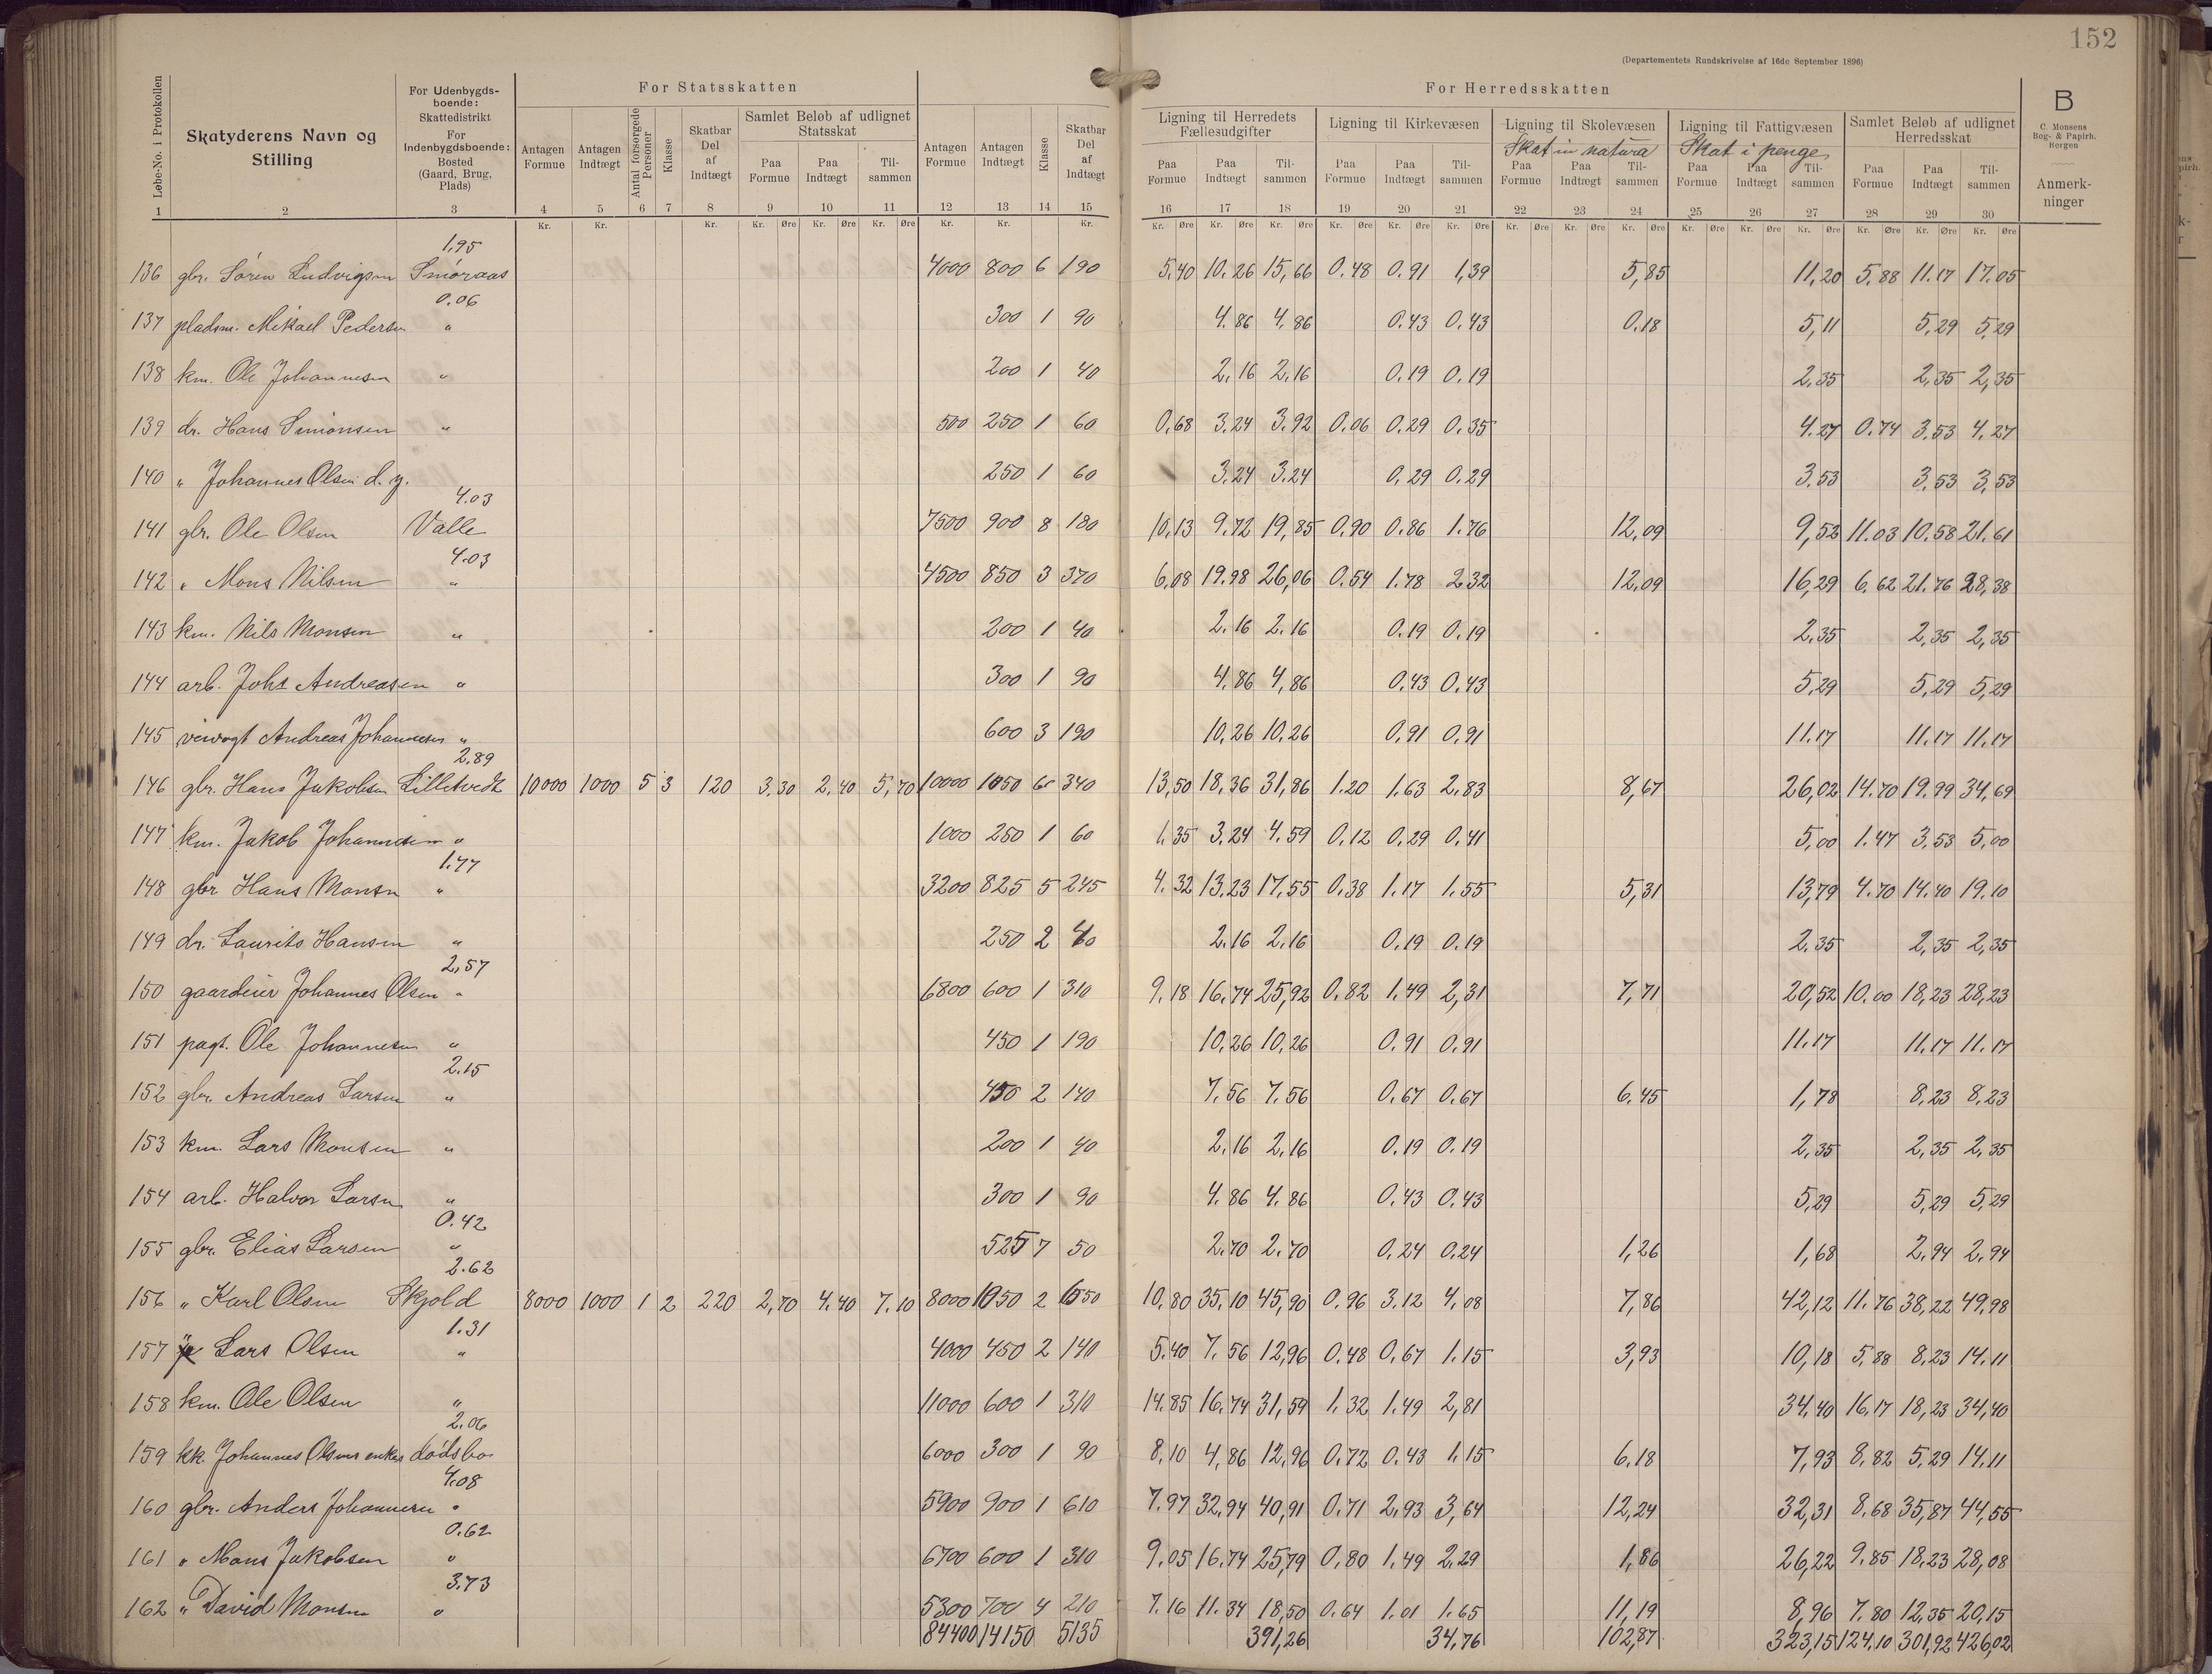 152
(Departementets Rundskrivelse af 16de September 1896)
For Statsskatten
For Herredsskatten
B
C. Monsens
Bog- & Papirh.
Bergen
Anmerk-
ninger
Løbe-No. i Protokollen
Skatyderens Navn og
Stilling
For Udenbygds-
boende:
Skattedistrikt
For
Indenbygdsboende:
Bosted
(Gaard, Brug,
Plads)
Antagen Formue
Antagen Indtægt
Antal forsørgede Personer
Klasse
Skatbar Del af Indtægt
Samlet Beløb af udlignet Statsskat
Paa Formue
Paa Indtægt
Til-sammen
Antagen Formue
Antagen Indtægt
Klasse
Skatbar Del af Indtægt
Ligning til Herredets Fællesudgifter
Paa Formue
Paa Indtægt
Til-sammen
Ligning til Kirkevæsen
Paa Formue
Paa Indtægt
Til-sammen
Ligning til Skolevæsen
Skat in natura
Paa Formue
Paa Indtægt
Til-sammen
Ligning til Fattigvæsen
Skat i penge
Paa Formue
Paa Indtægt
Til-sammen
Samlet Beløb af udlignet Herredsskat
Paa Formue
Paa Indtægt
Til-sammen
1 2 3 4 5 6 7 8 9 10 11 12 13 14 15 16 17 18 19 20 21 22 23 24 25 26 27 28 29 30
Kr. Kr. Kr. Kr. Øre Kr. Øre Kr. Øre Kr. Kr. Kr. Kr. Øre Kr. Øre Kr. Øre Kr. Øre Kr. Øre Kr. Øre Kr. Øre Kr. Øre Kr. Øre Kr. Øre Kr. Øre Kr. Øre Kr. Øre Kr. Øre Kr. Øre
1,95
136 gbr. Sören Ludvigsen Smöraas 4000 800 6 190 5,40 10,26 15,66 0,48 0,91 1,39 5,85 11,20 5,88 11,17 17,05
0.06
137 pladsm. Mikael Pedersen " 300 1 90 4,86 4,86 0,43 0,43 0,18 5,11 5,29 5,29
138 km. Ole Johannesen " 200 1 40 2,16 2,16 0,19 0,19 2,35 2,35 2,35
139 dr. Hans Simonsen " 500 250 1 60 0,68 3,24 3,92 0,06 0,29 0,35 4,27 0,74 3,53 4,27
140 " Johannes Olsen d. y. 250 1 60 3,24 3,24 0,29 0,29 3,53 3,53 3,53
4.03
141 gbr. Ole Olsen Valle 7500 900 8 180 10,13 9,72 19,85 0,90 0,86 1,76 12,09 9,52 11,03 10,58 21,61
4.03
142 " Mons Nilsen " 4500 850 3 370 6,08 19,98 26,06 0,54 1,78 2,32 12,09 16,29 6,62 21,76 28,38
143 km. Nils Monsen " 200 1 40 2,16 2,16 0,19 0,19 2,35 2,35 2,35
144 arb. Johs Andreasen " 300 1 90 4,86 4,86 0,43 0,43 5,29 5,29 5,29
145 veivogt Andreas Johannesen " 600 3 190 10,26 10,26 0,91 0,91 11,17 11,17 11,17
2.89
146 gbr. Hans Jakobsen Lilletvedt 10000 1000 5 3 120 3,30 2,40 5,70 10000 1050 6 340 13,50 18,36 31,86 1,20 1,63 2,83 8,67 26,02 14,70 19,99 34,69
147 km. Jakob Johannesen " 1000 250 1 60 1,35 3,24 4,59 0,12 0,29 0,41 5,00 1,47 3,53 5,00
1.77
148 gbr Hans Monsen " 3200 825 5 245 4,32 13,23 17,55 0,38 1,17 1,55 5,31 13,79 4,70 14,40 19,10
149 dr. Laurits Hansen " 250 2 40 2,16 2,16 0,19 0,19 2,35 2,35 2,35
2,57
150 gaardeier Johannes Olsen " 6800 600 1 310 9,18 16,74 25,92 0,82 1,49 2,31 7,71 20,52 10,00 18,23 28,23
151 pagt. Ole Johannesen " 450 1 190 10,26 10,26 0,91 0,91 11,17 11,17 11,17
2.15
152 gbr. Andreas Larsen " 450 2 140 7,56 7,56 0,67 0,67 6,45 1,78 8,23 8,23
153 km. Lars Monsen " 200 1 40 2,16 2,16 0,19 0,19 2,35 2,35 2,35
154 arb. Halvor Larsen " 300 1 90 4,86 4,86 0,43 0,43 5,29 5,29 5,29
0.42
155 gbr. Elias Larsen " 525 7 50 2,70 2,70 0,24 0,24 1,26 1,68 2,94 2,94
2.62
156 " Karl Olsen Skjold 8000 1000 1 2 220 2,70 4,40 7,10 8000 1050 2 650 10,80 35,10 45,90 0,96 3,12 4,08 7,86 42,12 11,76 38,22 49,98
1.31
157 " Lars Olsen " 4000 450 2 140 5,40 7,56 12,96 0,48 0,67 1,15 3,93 10,18 5,88 8,23 14,11
158 km. Ole Olsen " 11000 600 1 310 14,85 16,74 31,59 1,32 1,49 2,81 34,40 16,17 18,23 34,40
2.06
159 kk. Johannes Olsens enkes dödsbo 6000 300 1 90 8,10 4,86 12,96 0,72 0,43 1,15 6,18 7,93 8,82 5,29 14,11
4.08
160 gbr. Anders Johannesen " 5900 900 1 610 7,97 32,94 40,91 0,71 2,93 3,64 12,24 32,31 8,68 35,87 44,55
0.62
161 " Mons Jakobsen " 6700 600 1 310 9,05 16,74 25,79 0,80 1,49 2,29 1,86 26,22 9,85 18,23 28,08
3.73
162 " David Monsen " 5300 700 4 210 7,16 11,34 18,50 0,64 1,01 1,65 11,19 8,96 7,80 12,35 20,15
84400 14150 5135 391,26 34,76 102,87 323,15 124,10 301,92 426,02